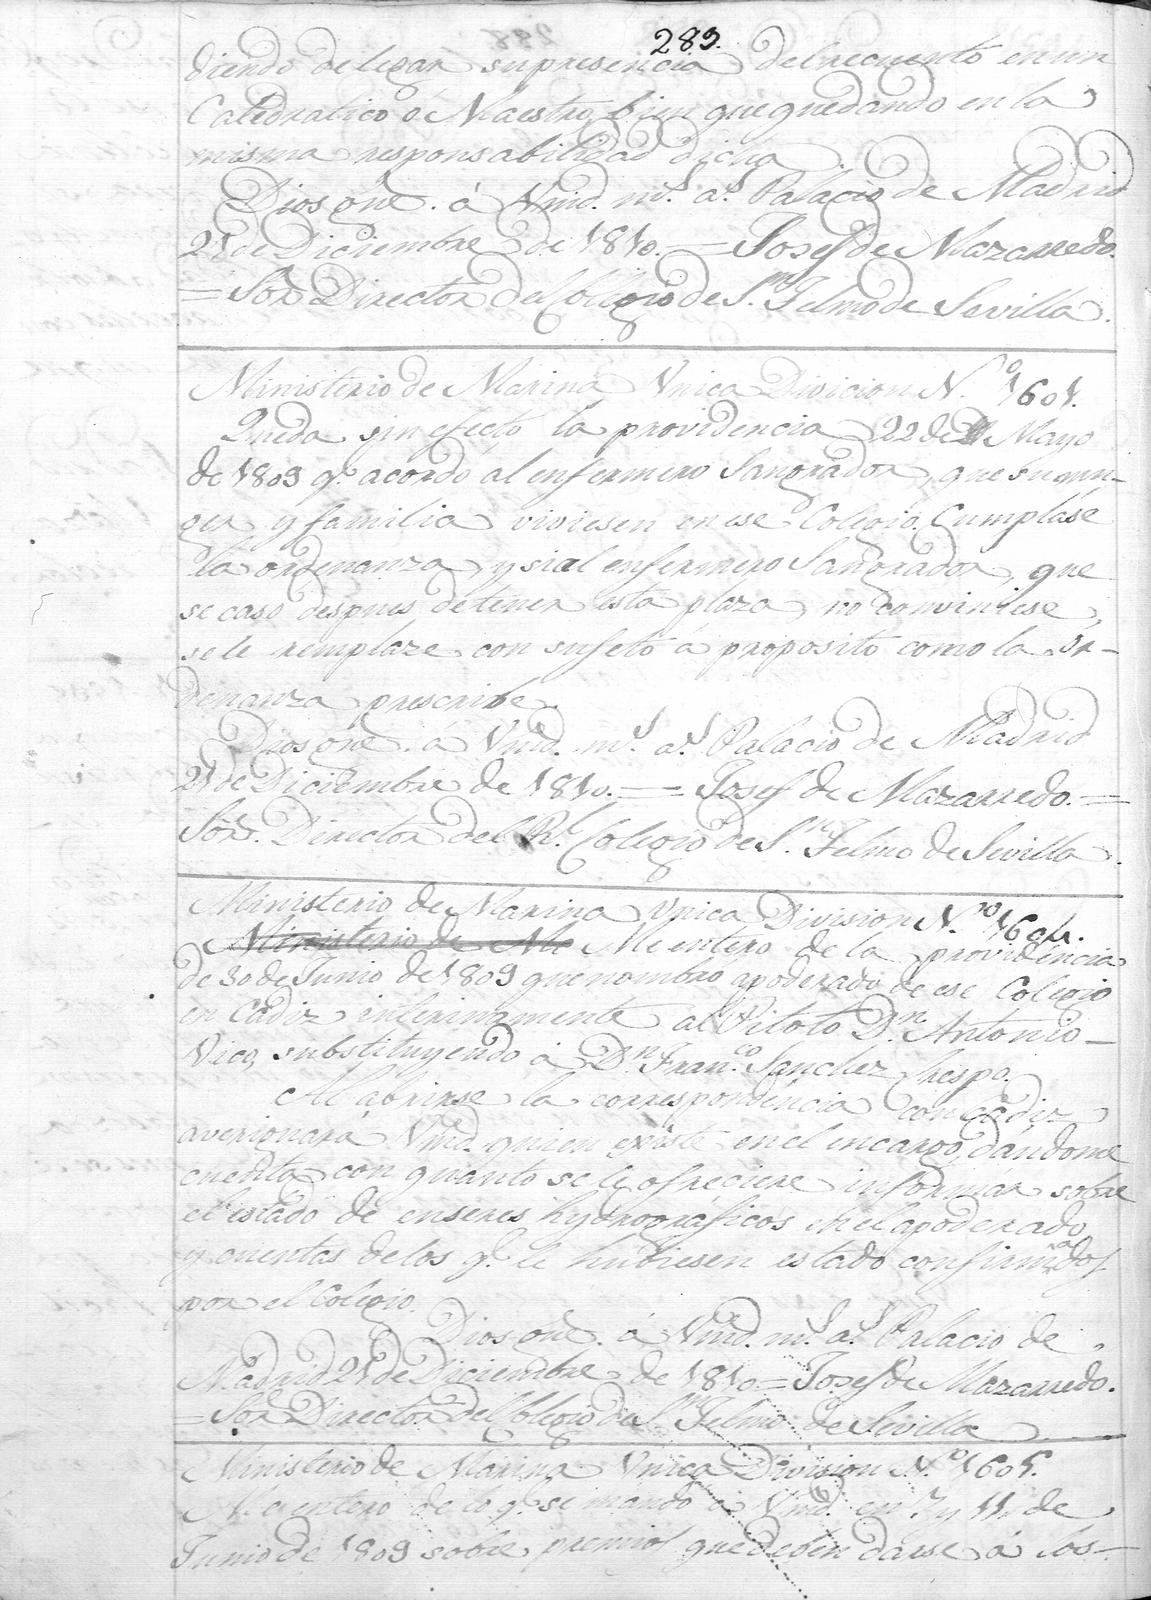 289.
diendo delegar su presencia del recuento en un
Catedratico ó Maestro, bien que quedando en la
misma responsabilidad dicha
Dios gue. á Vmd. ms. as. Palacio de Madrid
21 de Diciembre de 1810. = Josef de Mazarredo.
= Sor. Director del Colegio de Sn. Telmo de Sevilla.
Ministerio de Marina Vnica Divicion N.º 1601.
Queda sin efecto la providencia 22 de Mayo
de 1809 q.e acordó al enfermero Sangrador, que su mu-
ger y familia viviesen en ese Colegio. Cumplase
la ordenanza, y si al enfermero Sangrador, que
se caso despues de tener esta plaza, no conviniese,
se le remplaze con sujeto á proposito como la Or-
denanza prescribe.
Dios gue. á Vmd. ms. as. Palacio de Madrid
21 de Diciembre de 1810. = Josef de Mazarredo. =
Sor. Director del Rl. Colegio de Sn. Telmo de Sevilla.
Ministerio de Marina Vnica Division N.ro 1604.
Ministerio de Me entero de la providencia
de 30 de Junio de 1809 que nombro apoderado de ese Colegio
en Cadiz interinamente al Piloto Dn. Antonio
Vico, substituyendo á Dn. Franco. Sanchez Crespo.
Al abrirse la correspondencia con Cadiz
averiguará Vmd. quien existe en el encargo, dandome
cuenta con quanto se le ofreciere informar sobre
el estado de enseres hydrograficos en el apoderado,
y cuentas de los q.e le hubiesen estado confirmados
por el Colegio.
Dios gue. á Vmd. ms. as. Palacio de
Madrid 21 de Diciembre de 1810 = Josef de Mazarredo.
= Sor. Director del Colegio de Sn. Telmo de Sevilla
Ministerio de Marina Vnica Division N.ro 1605.
Me entero de lo q.e se mandó á Vmd. en 7 y 11 de
Junio de 1809 sobre premios que deben darse á los